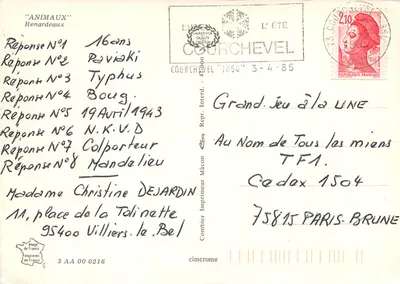 "ANIMAUX"
Renardeaux
Réponse N°1 16 ans
Réponse N°2 Raviaki
Réponse N°3 Typhus
Réponse N°4 Boug.
Réponse N°5 19 Avril 1943
Réponse N°6 N.K.V.D
Réponse N°7 Colporteur
Réponse N°8 Mandelieu
Madame Christine DESJARDIN
11, place de la Tolinette
95400 Villiers. le. Bel
3 AA 00 0216
Combier Imprimeur Mâcon
Repr. Interd.
cimcrome
L'ÉTÉ
COURCHEVEL
COURCHEVEL "1850" 3-4-85
2,10
Grand Jeu à la UNE
Au Nom de Tous les miens
TF1.
Cedex 1504
75815 PARIS BRUNE